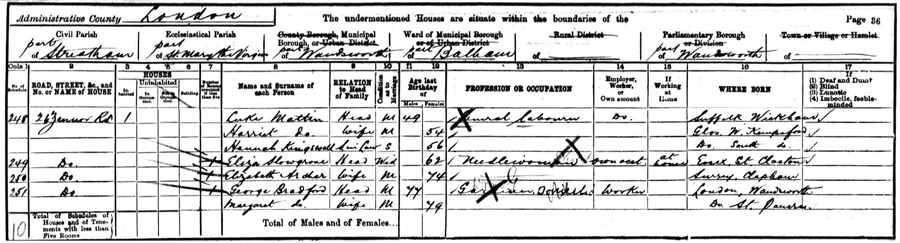 Administrative County London
The undermentioned Houses are situate within the boundaries of the
Page 36
Civil Parish
part of Streatham
Ecclesiastical Parish
part of St Mary the Virgin
County Borough, Municipal Borough, or Urban District
part of Wandsworth
Ward of Municipal Borough or of Urban District
part of Balham
Rural District
of
Parliamentary Borough or Division
part of Wandsworth
Town or Village or Hamlet
of
Cols 1 2 3 4 5 6 7 8 9 10 11 12 13 14 15 16 17
No. of Schedule
ROAD, STREET, &c., and No. or NAME of HOUSE
HOUSES
Inhabited
Uninhabited
In Occupation
Not in Occupation
Building
Name and Surname of each Person
RELATION to Head of Family
Condition as to Marriage
Age last Birthday of
Males Females
PROFESSION OR OCCUPATION
Employer, Worker, or Own account
If Working at Home
WHERE BORN
If
(1) Deaf and Dumb
(2) Blind
(3) Lunatic
(4) Imbecile, feeble-minded
248 26 Zennor Rd 1 Luke Mattin Head M 49 Do. Suffolk
Harriet Do. Wife M 54 Glos.
Hannah S 56 Do.
249 Do 1 Eliza Head Wid 62 Needlewoman own acct at home Essex St
250 Do 1 Elizabeth Archer Wife M 74 Surrey, Clapham
251 Do 1 George Bradford Head M 77 Worker London, Wandsworth
Margaret Do. Wife M 79 Do. St. Pancras
10
Total of Schedules of Houses and of Tenements with less than Five Rooms
Total of Males and of Females